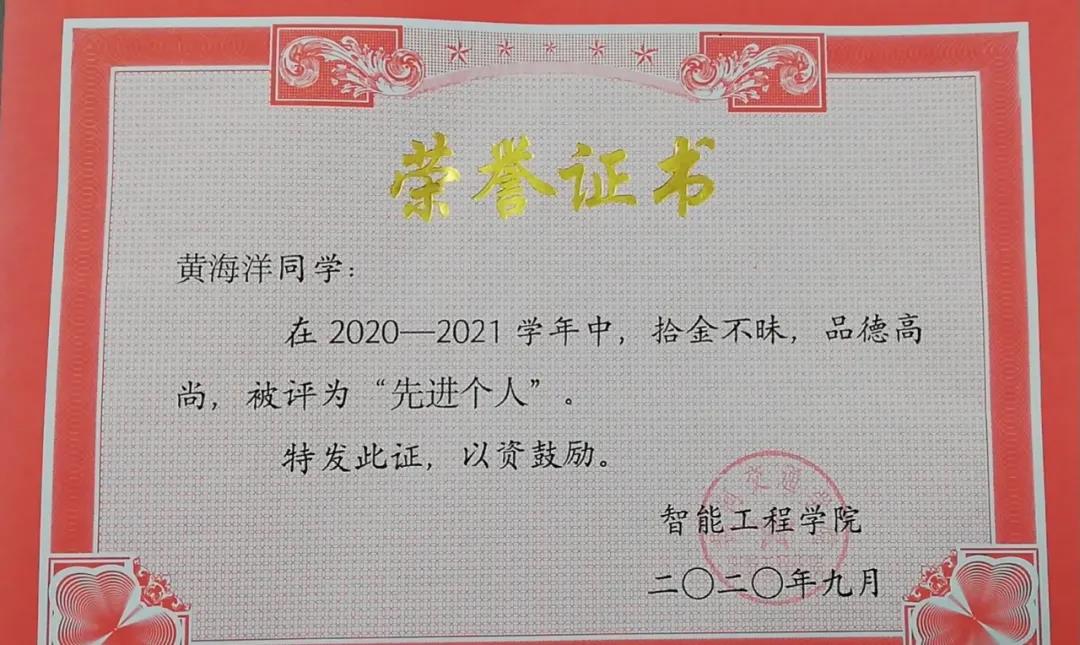 荣誉证书
黄海洋同学：
在 2020—2021 学年中，拾金不昧，品德高
尚，被评为“先进个人”。
特发此证，以资鼓励。
智能工程学院
二〇二〇年九月